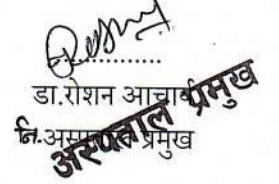 डा.रोशन आचार्य
नि.अस्पताल प्रमुख
अस्पताल प्रमुख